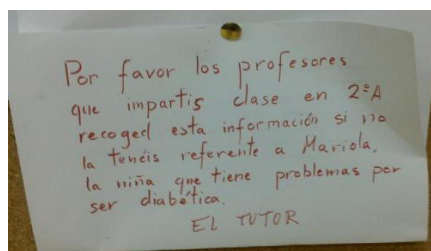 Por favor los profesores
que impartis clase en 2ºA
recoged esta información si no
la tenéis referente a Mariola,
la niña que tiene problemas por
ser diabética.
EL TUTOR